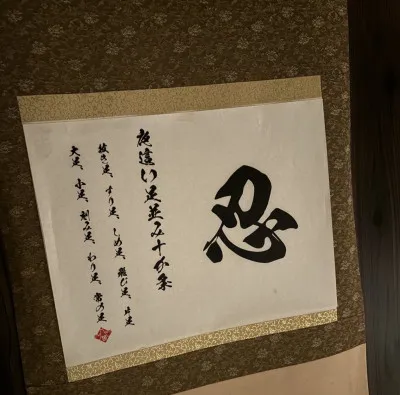 忍
夜這い足並み十か条
抜き足、すり足、しめ足、飛び足、片足
大足、小足、刻み足、わり足、常の足